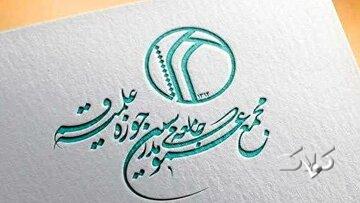 ۱۳۴۲
مجمع عمومی جامعه مدرسین حوزه علمیه قم